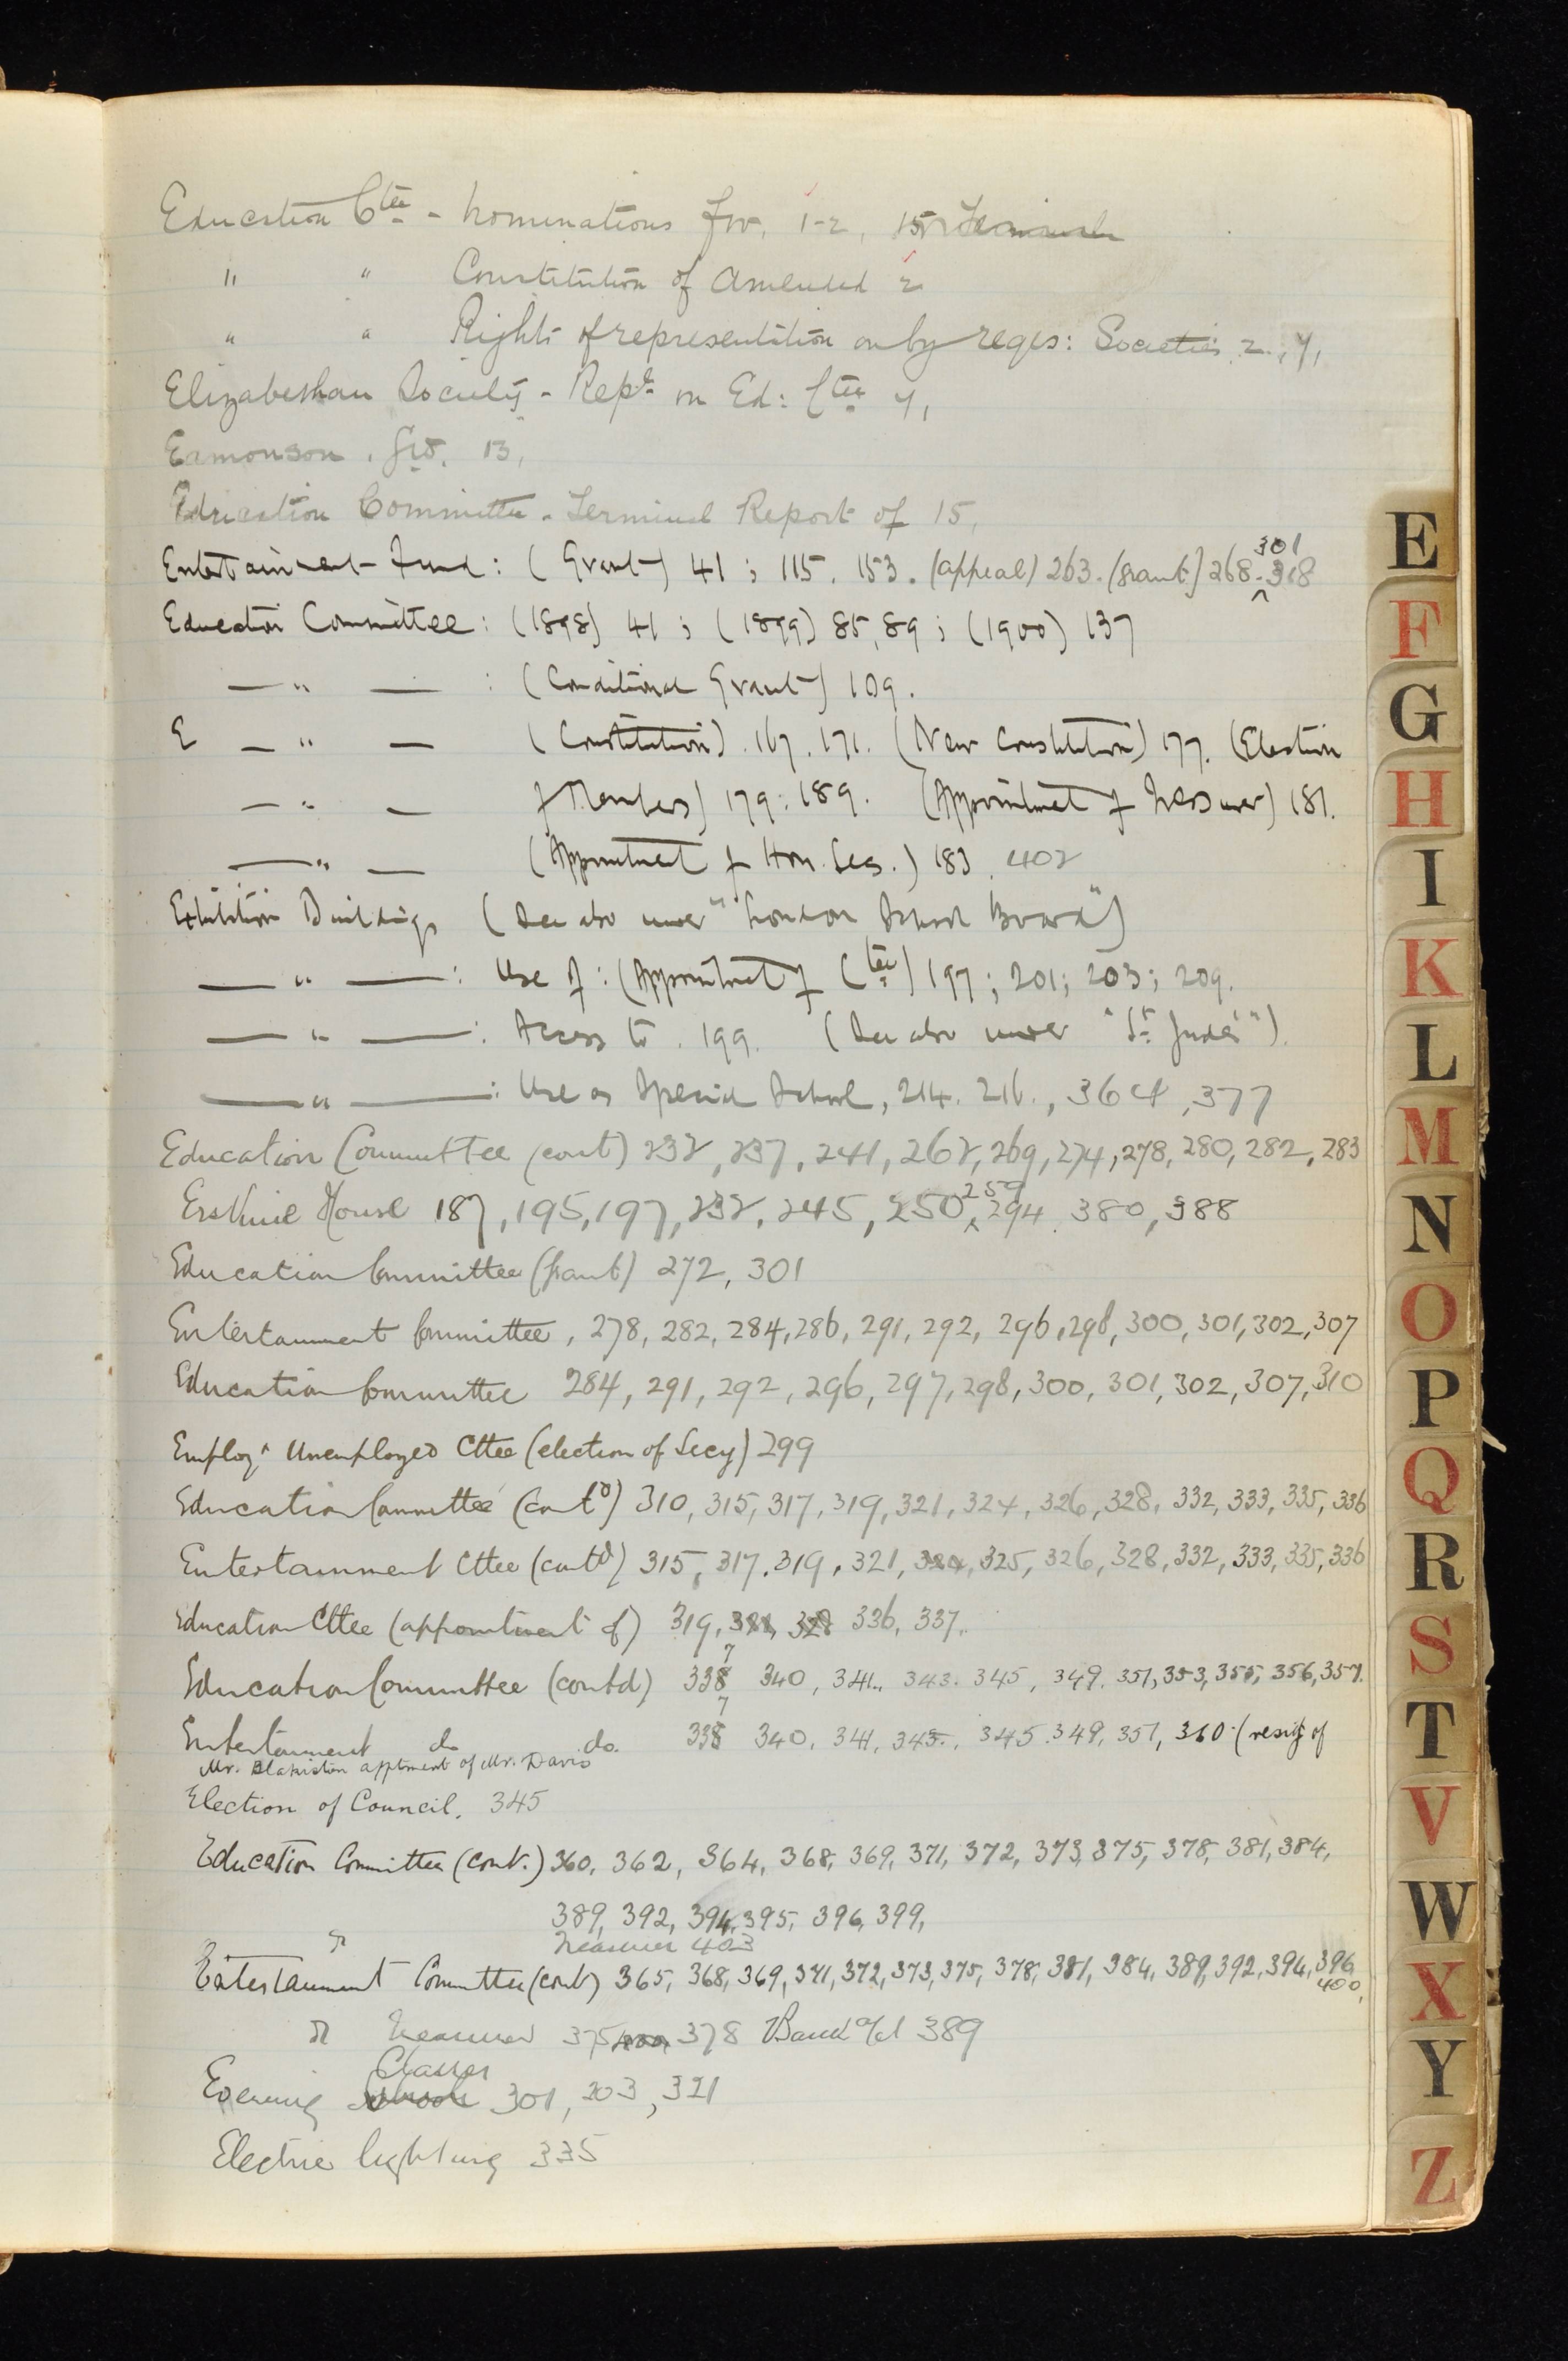 Education Ctee - Nominations for, 1-2, 15, Terminal
" " Constitution of Amended 2
" " Rights of representation on by reges: Societies 2, 7,
Elizabethan Society - Rept. on Ed: Ctee 7,
Eamonson, Geo. 13,
Education Committee - Terminal Report of 15,
301
Entertainment Fund: (Grant) 41; 115. 153. (appeal) 263. (grant) 268. 318
Education Committee: (1898) 41; (1899) 85, 89; (1900) 137
— " — : (Conditional Grant) 109.
E — " — (Constitution). 167. 171. (New Constitution) 177. (Election
— " — of Members) 179: 189. (Appointment of Treasurer) 181.
— " — (Appointment of Hon. Secs.) 183. 402
Exhibition Buildings (See also under "London School Board")
— " — : Use of: (Appointment of Ctee) 197; 201; 203; 209.
— " — : Access to. 199. (See also under "St Jude's").
— " — : Use as Special School, 214. 216., 364, 377
Education Committee (cont) 232, 237, 241, 262, 269, 274, 278, 280, 282, 283
259
Erskine House 187, 195, 197, 232, 245, 250, 294. 380, 388
Education Committee (grant) 272, 301
Entertainment Committee, 278, 282, 284, 286, 291, 292, 296, 298, 300, 301, 302, 307
Education Committee 284, 291, 292, 296, 297, 298, 300, 301, 302, 307, 310
Employt Unemployed Cttee (election of Secy) 299
Education Committee (contd) 310, 315, 317, 319, 321, 324, 326, 328, 332, 333, 335, 336
Entertainment Cttee (contd) 315, 317, 319, 321, 324, 325, 326, 328, 332, 333, 335, 336
Education Cttee (appointment of) 319, 328 336, 337,
7
Education Committee (contd) 338 340, 341, 343. 345, 349, 351, 353, 355, 356, 357.
7
Entertainment do do. 338 340, 341, 343., 345. 349, 351, 360 (resig of
Mr. Blakiston apptment of Mr. Davis
Election of Council. 345
Education Committee (cont.) 360, 362, 364, 368, 369, 371, 372, 373, 375, 378, 381, 384,
389, 392, 394, 395, 396, 399,
" Treasurer 403
Entertainment Committee (cont) 365, 368, 369, 371, 372, 373, 375, 378, 381, 384, 389, 392, 394, 396
400,
" Treasurer 375 378 Bank a/c 389
Classes
Evening Schools 301, 203, 321
Electric lighting 335
E
F
G
H
I
K
L
M
N
O
P
Q
R
S
T
V
W
X
Y
Z